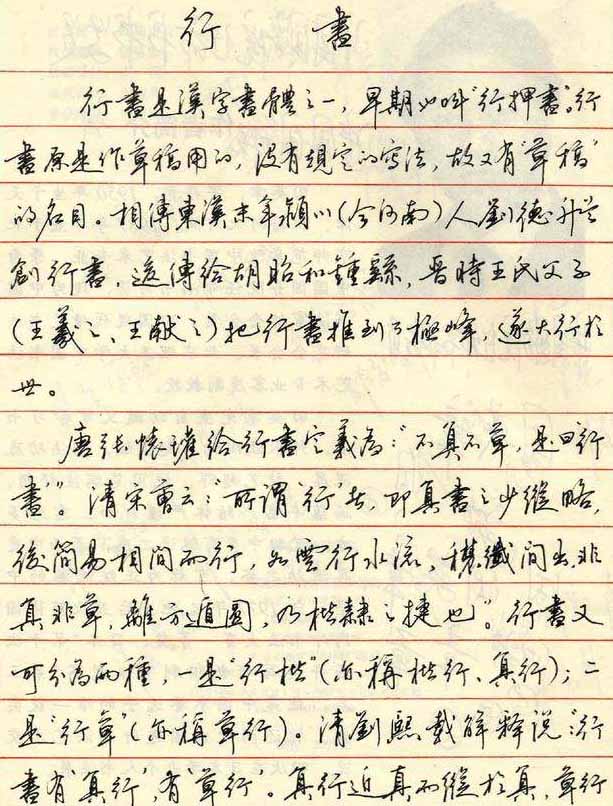 行書
行書是漢字書體之一,早期也叫“行押書”。行
書原是作草稿用的,沒有規定的寫法,故又有“草稿”
的名目。相傳東漢末年潁川(今河南)人劉德升首
創行書,後傳給胡昭和鍾繇,晋時王氏父子
(王羲之、王献之)把行書推到了極峰,遂大行於
世。
唐張懷瓘給行書定義爲:“不真不草,是曰行
書”。清宋曹云:“所謂行者,即真書之少縱略,
後簡易相間而行,如雲行水流,穠纖間出,非
真非草,離方遁圓,乃楷隸之捷也”。行書又
可分爲兩種,一是“行楷”(亦稱楷行、真行);二
是“行草”(亦稱草行)。清劉熙載解释説:“行
書有‘真行’,有‘草行’。真行近真而縱於真,草行